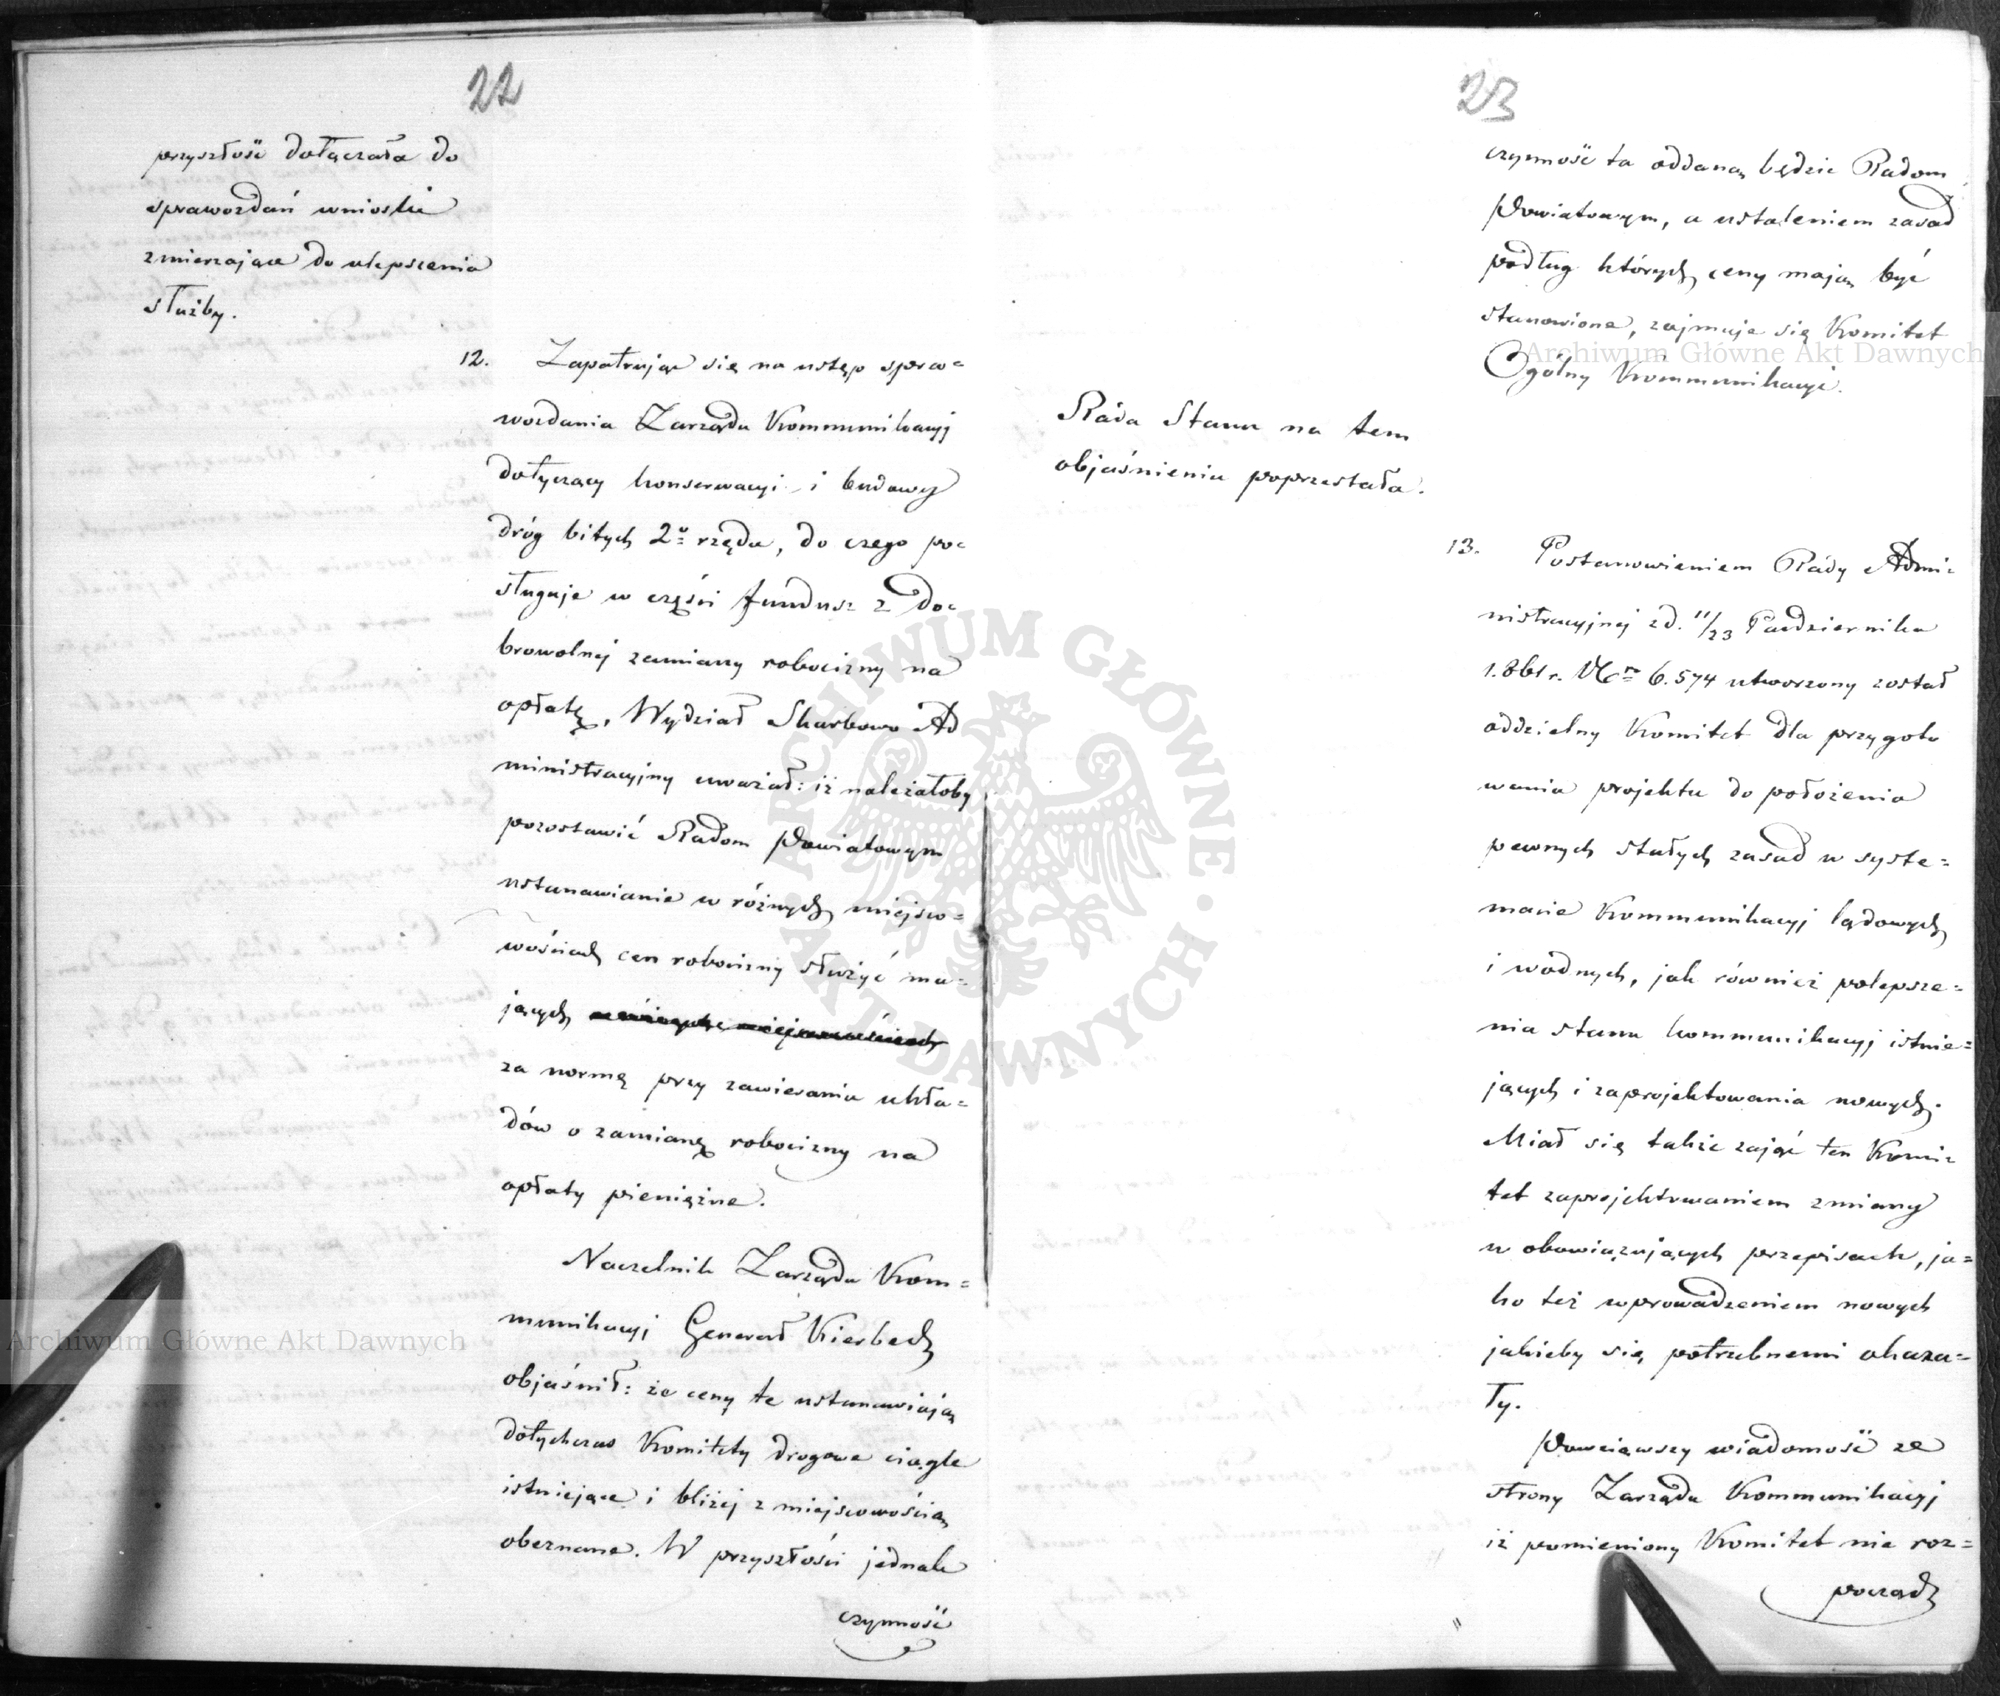 22
przyszłość dołączała do
sprawozdań wnioski
zmierzające do ulepszenia
służby.
12. Zapatrując się na ustęp spra=
wozdania Zarządu Kommunikacyj
dotyczący konserwacyi i budowy
dróg bitych 2º rzędu, do czego po=
sługuje w części fundusz z do=
browolnej zamiany robocizny na
opłatę, Wydział Skarbowo Ad
ministracyjny uważał: iż należałoby
pozostawić Radom Powiatowym
ustanawianie w różnych miejsco=
wościach cen robocizny służyć ma=
jących
za normę przy zawieraniu ukła=
dów o zamianę robocizny na
opłaty pieniężne.
Naczelnik Zarządu Kom=
munikacyj Generał Kierbedź
objaśnił: że ceny te ustanawiają
dotychczas Komitety drogowe ciągle
istniejące i bliżej z miejscowością
obeznane. W przyszłości jednak
czynność
23
czynność ta oddaną będzie Radom
Powiatowym, a ustaleniem zasad
podług których ceny mają być
stanowione, zajmuje się Komitet
Ogólny Kommunikacyi.
Rada Stanu na tem
objaśnieniu poprzestała.
13. Postanowieniem Rady Admi=
nistracyjnej z d. 11/23 Październiku
1861 r. Nr 6.574 utworzony został
oddzielny Komitet dla przygoto
wania projektu do położenia
pewnych stałych zasad w syste=
macie Kommunikacyj lądowych
i wodnych, jak również polepsze=
nia stanu kommunikacyj istnie=
jących i zaprojektowania nowych.
Miał się także zająć ten Komi=
tet zaprojektowaniem zmiany
w obowiązujących przepisach, ja=
ko też wprowadzeniem nowych
jakieby się potrzebnemi okaza=
ły.
Powziąwszy wiadomość ze
strony Zarządu Kommunikacyj
iż pomieniony Komitet nie roz=
począł
Archiwum Główne Akt Dawnych
Archiwum Główne Akt Dawnych
ARCHIWUM GŁÓWNE · AKT DAWNYCH ·